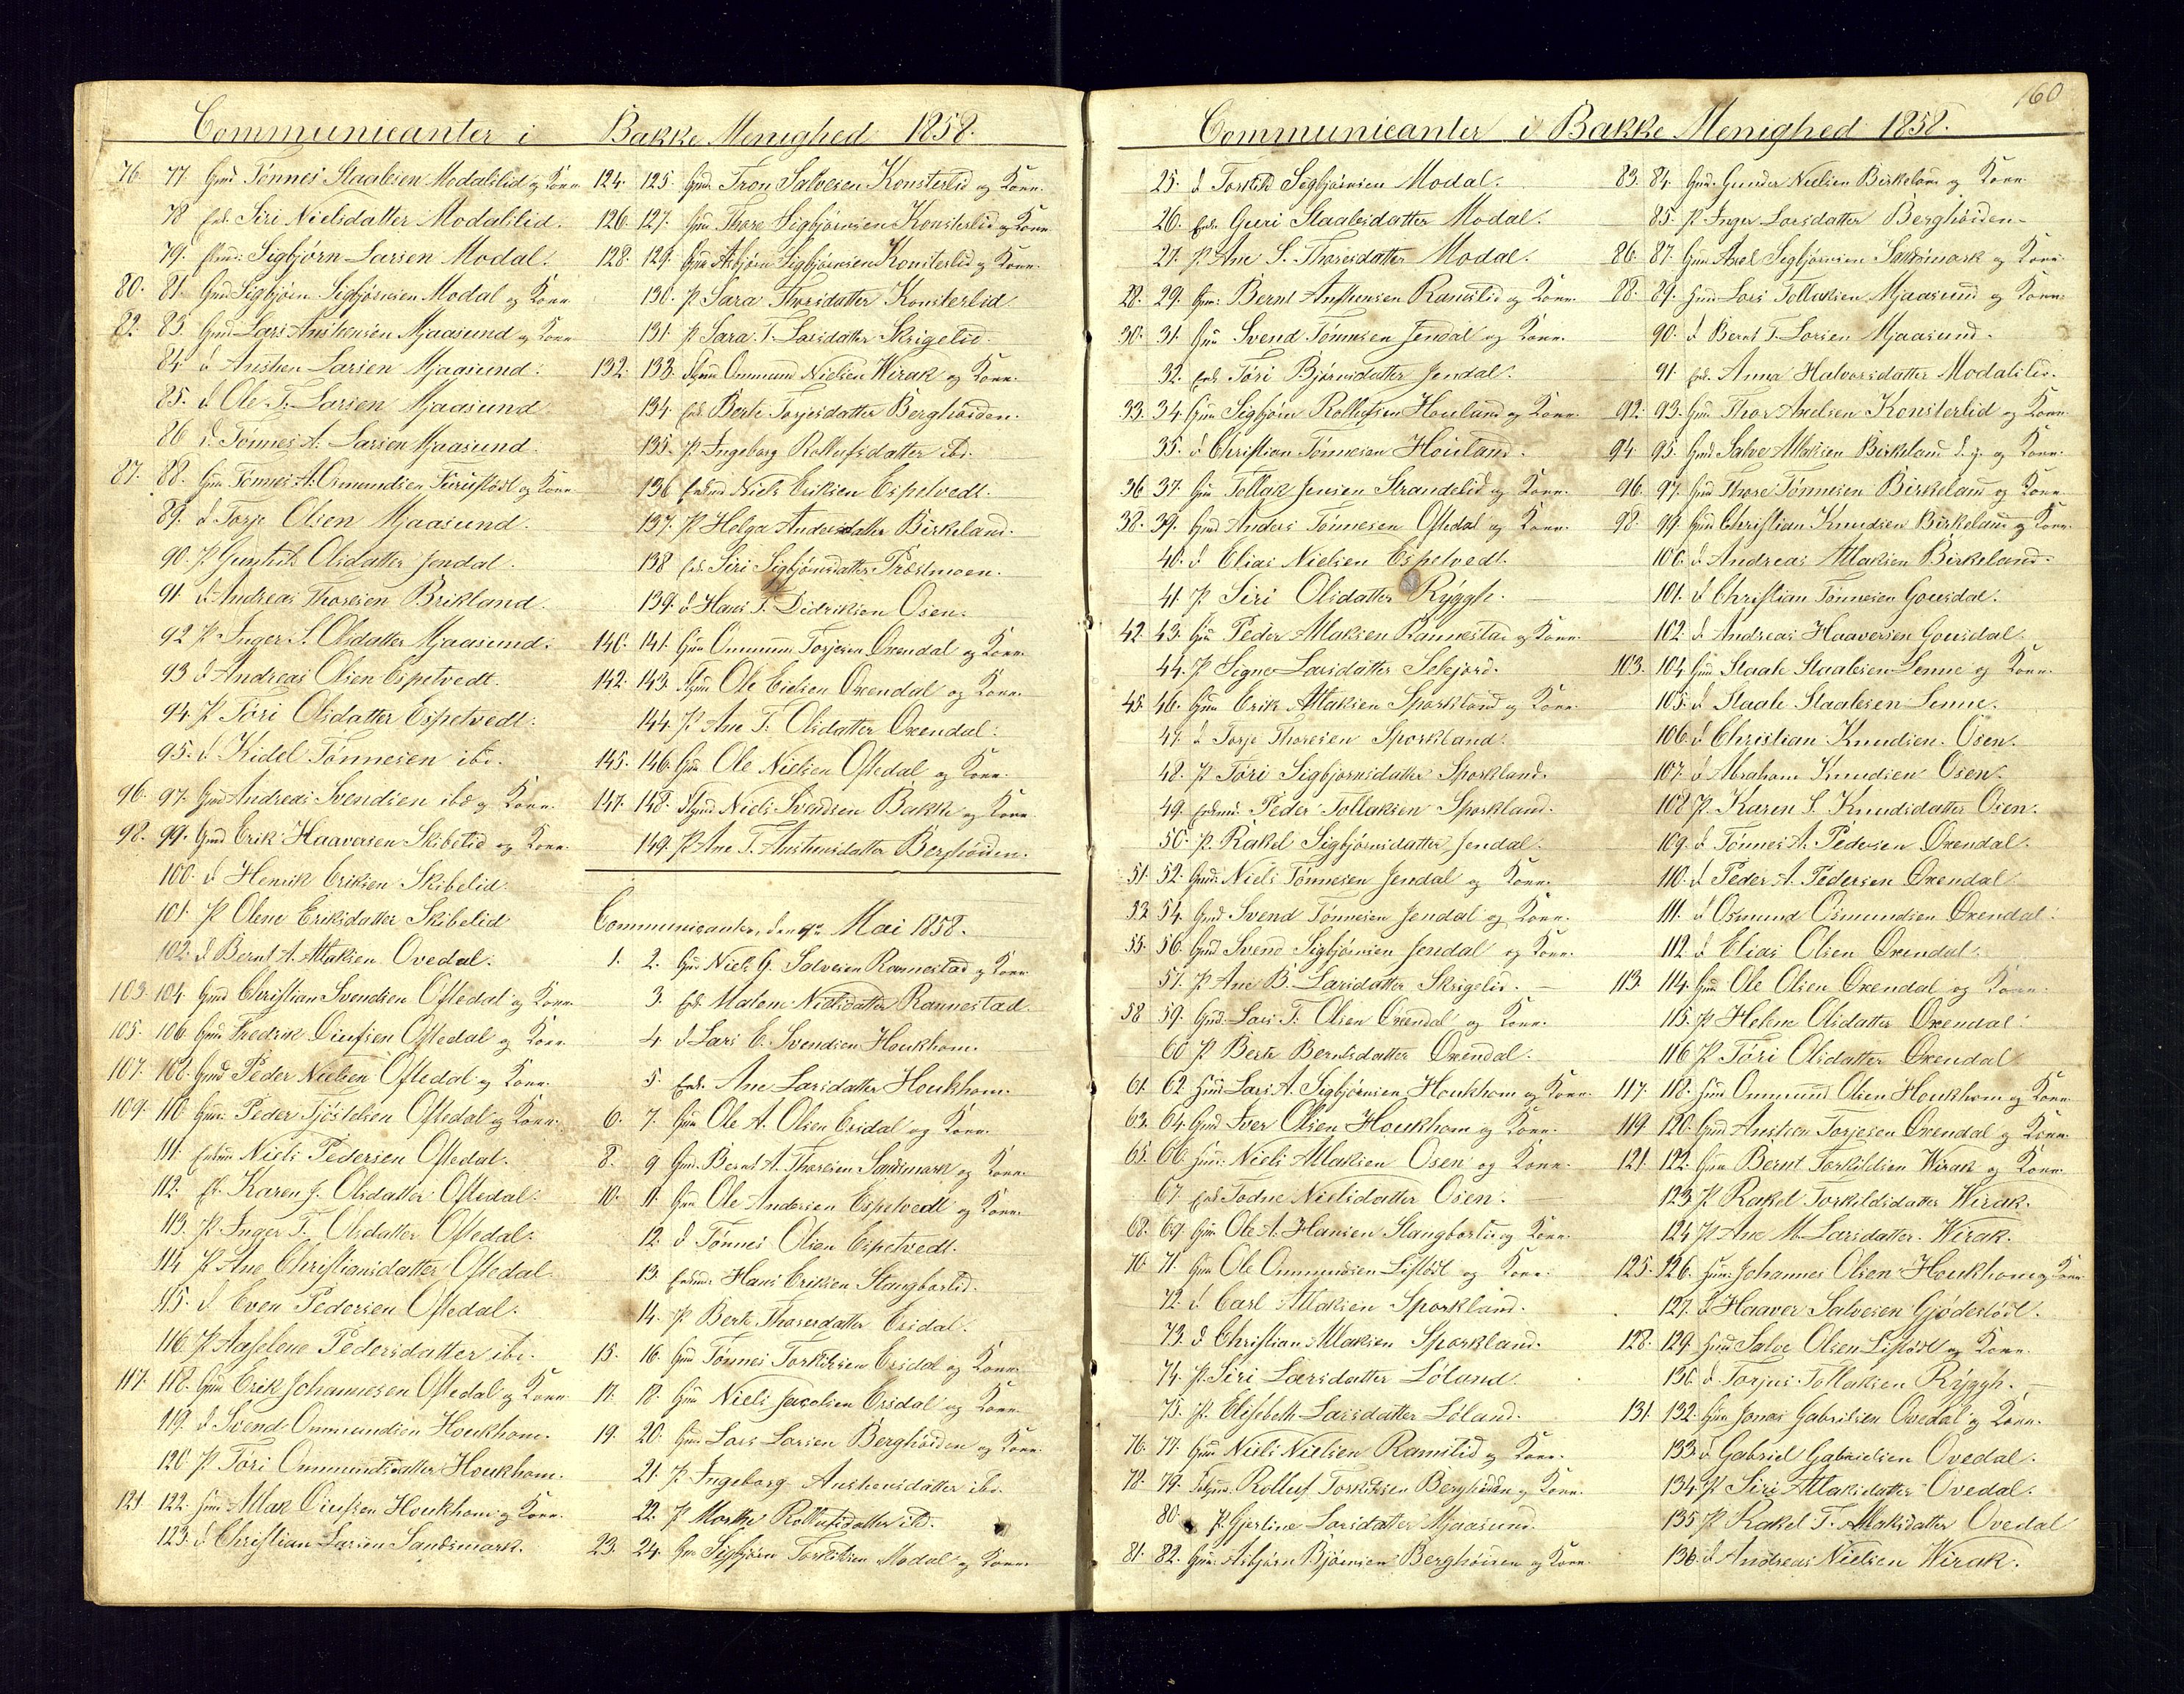 Communicanter i Bakke Menighed 1858.
76. 77. Gmd Tønnes Staalesen Modalslid og Kone
78 Enk. Siri Nielsdatter Modalslid.
79. Sigbjørn Larsen Modal.
80. 81. Gmd Sigbjørn Sigbjørnsen Modal og Kone
82. 83. Gmd Lars Anstensen Mjaasund og Kone
84. d Ansten Larsen Mjaasund.
85. d Ole T. Larsen Mjaasund
86 d. Tønnes A. Larsen Mjaasund.
87. 88. Gm Tønnes A. Osmundsen og Kone
89. d Torje Olsen Mjaasund.
90. p Olsdatter Jendal.
91. d. Andreas Thoresen Brikland.
92 p Inger S. Olsdatter Mjaasund.
93 d Andreas Olsen Espetvedt.
94. p Tøri Olsdatter Espetvedt.
95. d. Kidel Tønnesen ibd.
96. 97. Gmd Andreas Svendsen ibd og Kone.
98. 99. Gmd Erik Haaversen Skibelid og Kone.
100. d Henrik Eriksen Skibelid.
101. p Olene Eriksdatter Skibelid
102. d Bernt A. Atlaksen Ovedal.
103. 104. Gmd Christian Svendsen Oftedal og Kone
105. 106. Gm Fredrik Oftedal og Kone
107. 108. Gmd Peder Nielsen Oftedal og Kone.
109. 110. Gm. Peder Oftedal og Kone.
111. Niels Pedersen Oftedal.
112. Karen J. Olsdatter Oftedal.
113. p Inger T. Olsdatter Oftedal.
114. p Ane Christiansdatter Oftedal.
115. d Even Pedersen Oftedal.
116. p Aaselene Pedersdatter ibd.
117. 118. Gm Erik Johannesen Oftedal og Kone
119. d Svend Ommundsen Houkhom.
120. p Tøri Ommundsdatter Houkhom.
121. 122. Gm Atlak Houkhom og Kone.
123. d Christian Larsen Sandsmark.
124. 125. Gm. Tron Salvesen Konsterlid og Kone.
126. 127. Gm. Thore Sigbjørnsen Konsterlid og Kone
128. 129. Gm Asbjørn Sigbjørnsen Konsterlid og Kone.
130. p Sara Thorsdatter Konsterlid
131. p Sara T. Larsdatter Skrigelid.
132. 133. Ommund Nielsen Wirak og Kone.
134. Enk. Berte Torjesdatter Berghøiden.
135. p Ingeborg Rollefsdatter ibd.
136 Niels Eriksen Espetvedt.
137. p Helga Andersdatter Birkeland.
138 Enk. Siri Sigbjørnsdatter Præstmoen.
139. d Hans T. Didriksen Osen.
140. 141. Gm Ommund Torjesen Oxendal og Kone.
142. 143. Ole Oxendal og Kone.
144. p Ane T. Olsdatter Oxendal.
145. 146. Gm Ole Nielsen Oftedal og Kone.
147. 148. Niels Svendsen Bakke og Kone
149. p Ane T. Anstensdatter Berghøiden.
Communicanter, den 9de Mai 1858.
1. 2. Gm Niels G. Salvesen Rannestad og Kone
3. Enk. Malene Nielsdatter Rannestad.
4. d Lars E. Svendsen Houkhom.
5. Enk. Ane Larsdatter Houkhom.
6. 7. Gm Ole A. Olsen Eisdal og Kone.
8. 9 Gmd. Bernt A. Thoresen Sandsmark og Kone.
10. 11. Gm Ole Andersen Espetvedt og Kone.
12. d Tønnes Olsen Espetvedt.
13. Hans Eriksen Stangborlid.
14. p Berte Thoresdatter Eisdal.
15. 16. Gm Tønnes Torkildsen Eisdal og Kone
17. 18. Gm Niels Jacobsen Eisdal og Kone
19. 20. Gm Lars Larsen Berghøiden og Kone.
21. p Ingeborg Anstensdatter ibd.
22. p Marthe Rollefsdatter ibd.
23. 24. Gm Sigbjørn Torkildsen Modal og Kone.
160
Communicanter i Bakke Menighed 1858.
25. d Torkild Sigbjørnsen Modal.
26. Enk. Guri Staalesdatter Modal.
27. p Ane S. Thoresdatter Modal.
28. 29. Gm. Bernt Anstensen Ramslid og Kone.
30. 31. Gm Svend Tønnesen Jendal og Kone.
32. Enk. Tøri Bjørnsdatter Jendal.
33. 34. Gm Sigbjørn Rollefsen Houland og Kone.
35. d Christian Tønnesen Houland.
36. 37. Gm Tollak Jensen Strandelid og Kone.
38. 39. Gmd Anders Tønnesen Oftedal og Kone.
40. d Elias Nielsen Espetvedt.
41. p Siri Olsdatter Rygg.
42. 43. Gm Peder Atlaksen Rannestad og Kone.
44. p Signe Larsdatter Selejord.
45. 46. Gm Erik Atlaksen Sporkland og Kone.
47. d Torje Thoresen Sporkland.
48. p Tøri Sigbjørnsdatter Sporkland.
49. Peder Tollaksen Sporkland.
50. p. Rakel Sigbjørnsdatter Jendal.
51. 52. Gmd. Niels Tønnesen Jendal og Kone.
53. 54. Gmd Svend Tønnesen Jendal og Kone.
55. 56. Gmd Svend Sigbjørnsen Jendal og Kone.
57. p Ane B. Larsdatter Skrigelid.
58 59. Gmd. Lars T. Olsen Oxendal og Kone.
60 p Berte Berntsdatter Oxendal.
61. 62. Gmd. Lars A. Sigbjørnsen Houkhom og Kone.
63. 64. Gmd Iver Olsen Houkhom og Kone.
65. 66. Gm. Niels Atlaksen Osen og Kone.
67. Enk Todne Nielsdatter Osen.
68. 69. Gm Ole A. Hansen Stangborlid og Kone.
70. 71. Gm Ole Ommundsen Listøl og Kone.
72. d Carl Atlaksen Sporkland.
73. d Christian Atlaksen Sporkland.
74. p. Siri Larsdatter Løland.
75. p. Elisebeth Larsdatter Løland.
76. 77. Gm Niels Nielsen Ramslid og Kone.
78. 79. Rollef Torkildsen Berghøiden og Kone.
80. p Gjerline Larsdatter Mjaasund.
81. 82. Gm. Asbjørn Bjørnsen Berghøiden og Kone.
83. 84. Gm. Gunder Nielsen Birkeland og Kone.
85. p Inger Larsdatter Berghøiden.
86. 87. Gm Axel Sigbjørnsen Sandsmark og Kone.
88. 89. Gm. Lars Tollaksen Mjaasund og Kone.
90. d Bernt T. Larsen Mjaasund.
91. Enk. Anna Halvorsdatter Modalslid.
92. 93. Gm Thor Axelsen Konsterlid og Kone.
94. 95. Gmd Salve Atlaksen Birkeland d. y. og Kone.
96. 97. Gmd Thore Tønnesen Birkeland og Kone.
98. 99. Gm Christian Knudsen Birkeland og Kone.
100. d Andreas Atlaksen Birkeland.
101. d Christian Tønnesen Gousdal.
102. d. Andreas Haaversen Gousdal.
103. 104. Gmd Staale Staalesen Lenne og Kone.
105. d Staale Staalesen Lenne.
106. d Christian Knudsen Osen.
107. d Abraham Knudsen Osen.
108 p. Karen S. Knudsdatter Osen.
109. d Tønnes A. Pedersen Oxendal.
110. d Peder A. Pedersen Oxendal
111. d Osmund Osmundsen Oxendal.
112. d Elias Olsen Oxendal.
113. 114. Gm Ole Olsen Oxendal og Kone.
115. p Helene Olsdatter Oxendal.
116 p Tøri Olsdatter Oxendal
117. 118. Gm Ommund Olsen Houkhom og Kone.
119. 120. Gmd Ansten Torjesen Oxendal og Kone.
121. 122. Gm Bernt Torkildsen Wirak og Kone.
123. p Rakel Torkildsdatter Wirak.
124. p Ane M. Larsdatter Wirak.
125. 126. Gm. Johannes Olsen Houkhom og Kone.
127. d Haaver Salvesen Gjødestøl.
128. 129. Gmd Salve Olsen Listøl og Kone.
130. d Torjus Tollaksen Rygg.
131. 132. Gm Jonas Gabrielsen Ovedal og Kone.
133. d Gabriel Gabrielsen Ovedal.
134. p Siri Atlaksdatter Ovedal.
135 p Rakel T. Atlaksdatter Ovedal
136. d Andreas Nielsen Wirak.